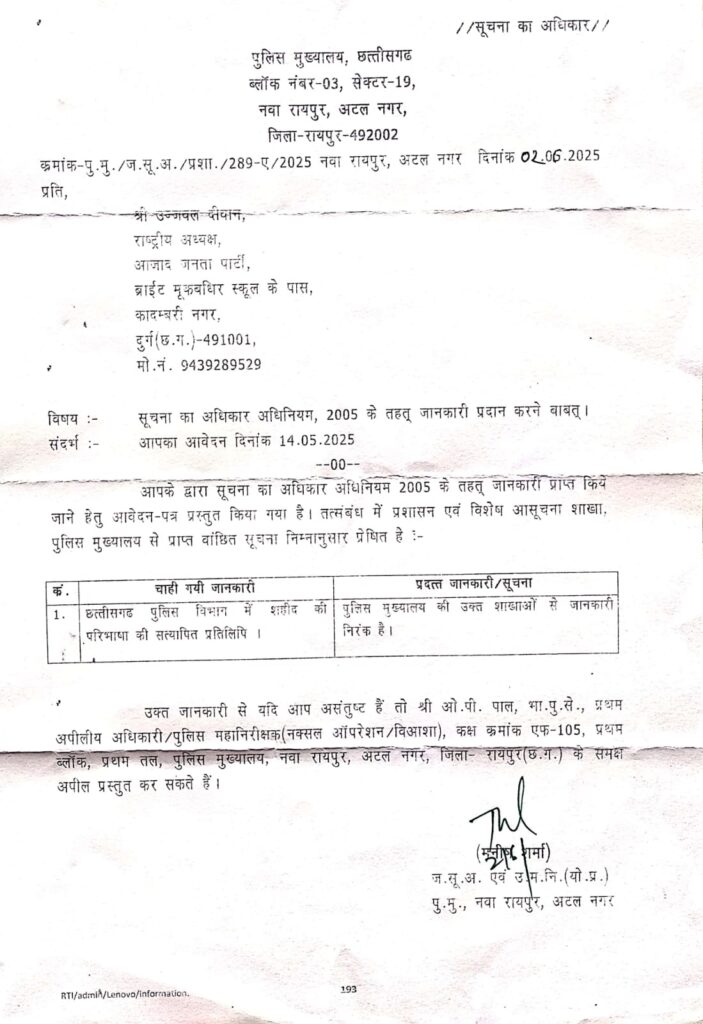 //सूचना का अधिकार//
पुलिस मुख्यालय, छत्तीसगढ
ब्लॉक नंबर-03, सेक्टर-19,
नवा रायपुर, अटल नगर,
जिला-रायपुर-492002
क्रमांक-पु.मु./ज.सू.अ./प्रशा./289-ए/2025 नवा रायपुर, अटल नगर दिनांक 02.06.2025
प्रति,
श्री उज्जवल दीवान,
राष्ट्रीय अध्यक्ष,
आजाद जनता पार्टी,
ब्राईट मूकबधिर स्कूल के पास,
कादम्बरी नगर,
दुर्ग(छ.ग.)-491001,
मो.नं. 9439289529
विषय :- सूचना का अधिकार अधिनियम, 2005 के तहत् जानकारी प्रदान करने बाबत्।
संदर्भ :- आपका आवेदन दिनांक 14.05.2025
--00--
आपके द्वारा सूचना का अधिकार अधिनियम 2005 के तहत् जानकारी प्राप्त किये
जाने हेतु आवेदन-पत्र प्रस्तुत किया गया है। तत्संबंध में प्रशासन एवं विशेष आसूचना शाखा,
पुलिस मुख्यालय से प्राप्त वांछित सूचना निम्नानुसार प्रेषित हे :-
कं. चाही गयी जानकारी प्रदत्त जानकारी/सूचना
1. छत्तीसगढ पुलिस विभाग में शहीद की पुलिस मुख्यालय की उक्त शाखाओं से जानकारी
परिभाषा की सत्यापित प्रतिलिपि । निरंक है।
उक्त जानकारी से यदि आप असंतुष्ट हैं तो श्री ओ.पी. पाल, भा.पु.से., प्रथम
अपीलीय अधिकारी/पुलिस महानिरीक्षक(नक्सल ऑपरेशन/विआशा), कक्ष कमांक एफ-105, प्रथम
ब्लॉक, प्रथम तल, पुलिस मुख्यालय, नवा रायपुर, अटल नगर, जिला- रायपुर(छ.ग.) के समक्ष
अपील प्रस्तुत कर सकते हैं।
(मनीष शर्मा)
ज.सू.अ. एवं उ.म.नि.(यो.प्र.)
पु.मु., नवा रायपुर, अटल नगर
RTI/admin/Lenovo/information.
193